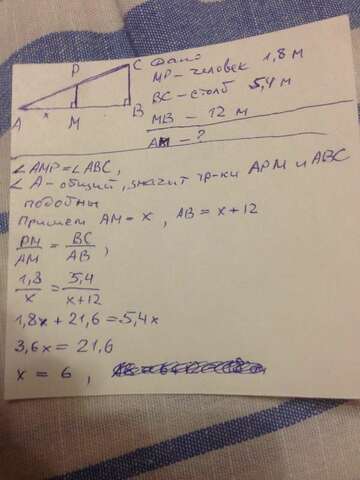 P
C
A
x
M
B
Дано
MP - человек 1,8 м
BC - столб 5,4 м
MB - 12 м
AM - ?
∠AMP = ∠ABC,
∠A - общий, значит тр-ки APM и ABC
подобны
Примем AM = x, AB = x + 12
PM/AM = BC/AB,
1,8/x = 5,4/(x+12)
1,8x + 21,6 = 5,4x
3,6x = 21,6
x = 6,